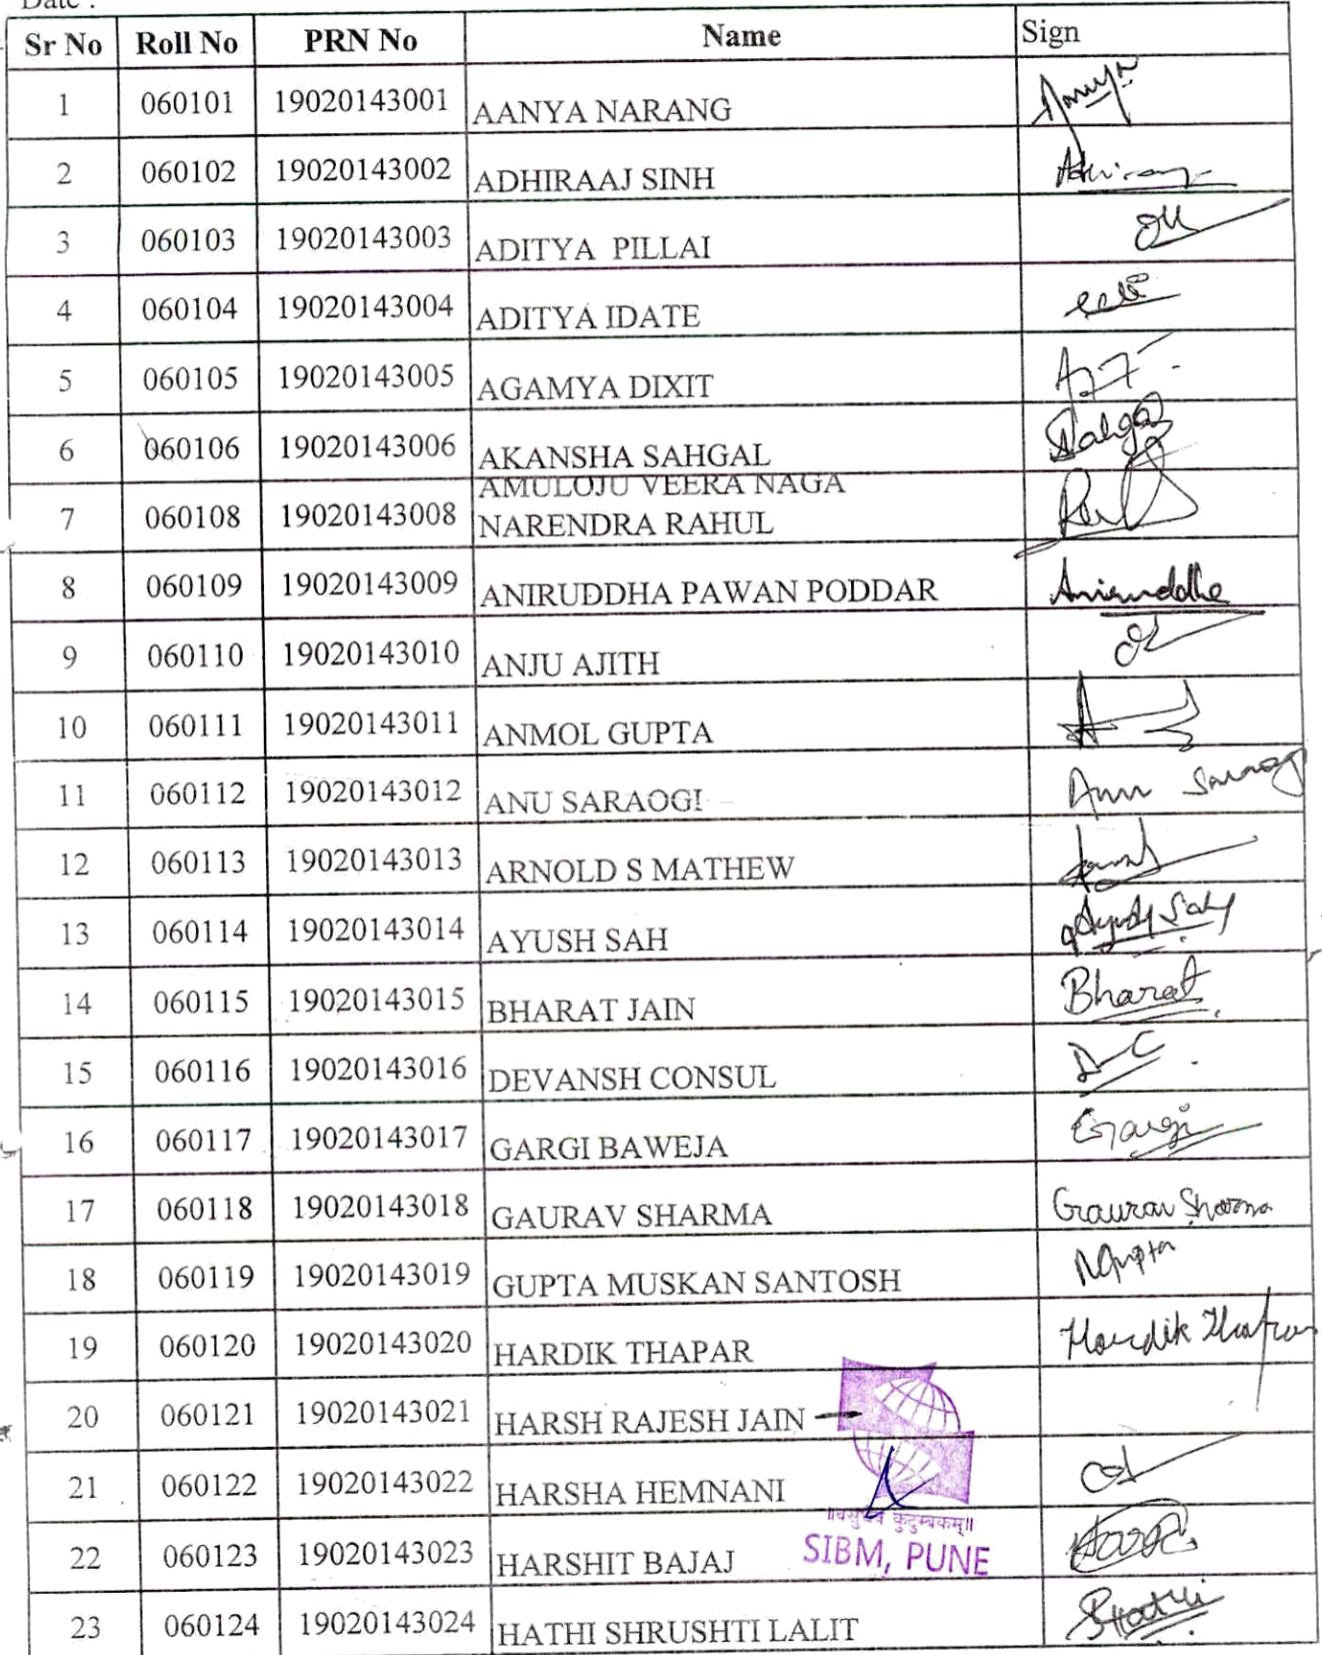 Date :
Sr No Roll No PRN No Name Sign
1 060101 19020143001 AANYA NARANG Aanya
2 060102 19020143002 ADHIRAAJ SINH
3 060103 19020143003 ADITYA PILLAI
4 060104 19020143004 ADITYA IDATE
5 060105 19020143005 AGAMYA DIXIT
6 060106 19020143006 AKANSHA SAHGAL Sahgal
AMULOJU VEERA NAGA
7 060108 19020143008 NARENDRA RAHUL
8 060109 19020143009 ANIRUDDHA PAWAN PODDAR Aniruddha
9 060110 19020143010 ANJU AJITH
10 060111 19020143011 ANMOL GUPTA
11 060112 19020143012 ANU SARAOGI Anu Saraogi
12 060113 19020143013 ARNOLD S MATHEW
13 060114 19020143014 AYUSH SAH Ayush Sah
14 060115 19020143015 BHARAT JAIN Bharat
15 060116 19020143016 DEVANSH CONSUL DC
16 060117 19020143017 GARGI BAWEJA Gargi
17 060118 19020143018 GAURAV SHARMA Gaurav Sharma
18 060119 19020143019 GUPTA MUSKAN SANTOSH MGupta
19 060120 19020143020 HARDIK THAPAR Hardik Thapar
20 060121 19020143021 HARSH RAJESH JAIN
21 060122 19020143022 HARSHA HEMNANI
॥वसुधैव कुटुम्बकम्॥
22 060123 19020143023 HARSHIT BAJAJ
SIBM, PUNE
23 060124 19020143024 HATHI SHRUSHTI LALIT